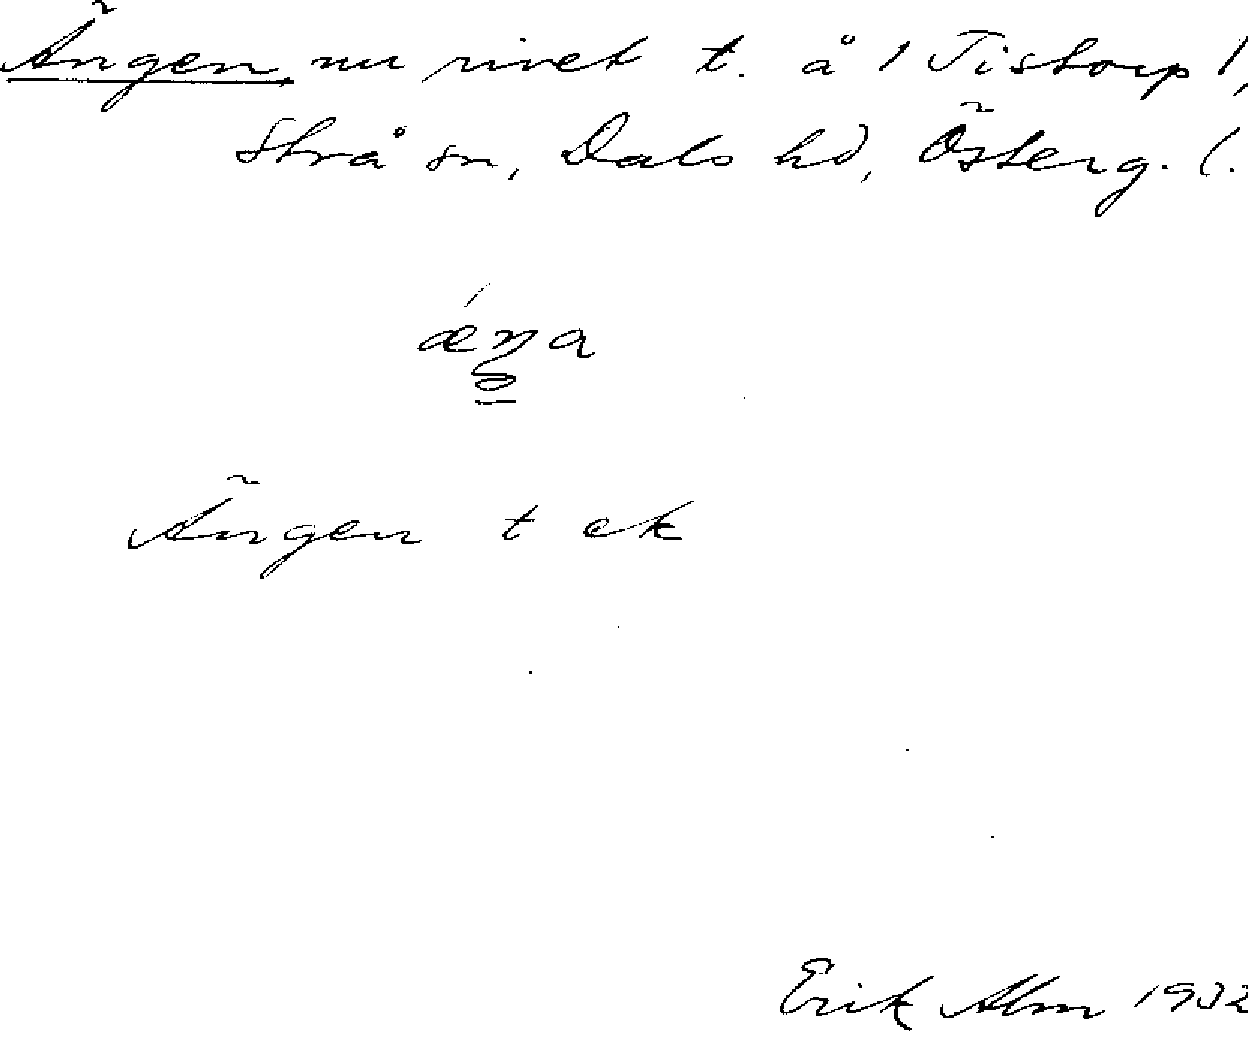 Ängen, nu rivet t. å 1 Tistorp 1,
Strå sn, Dals hd, Österg. l.
ǽŋa
Ängen t ek
Erik Alm 1932